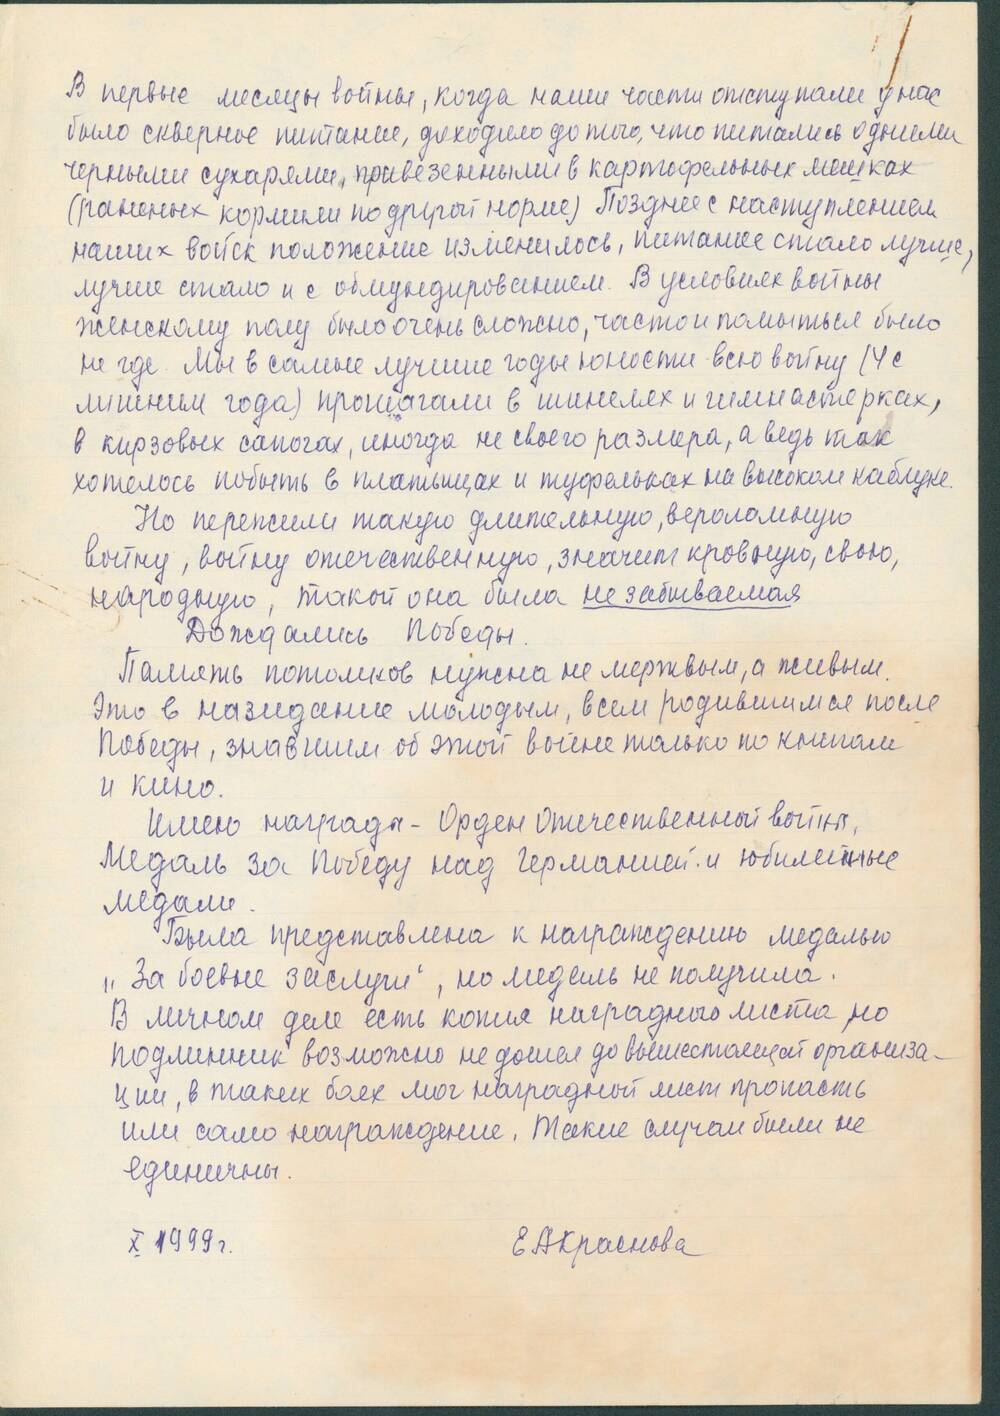 В первые месяцы войны, когда наши части отступали у нас
было скверное питание, доходило до того, что питались одними
черными сухарями, привезенными в картофельных мешках
(раненых кормили по другой норме) Позднее с наступлением
наших войск положение изменилось, питание стало лучше,
лучше стало и с обмундированием. В условиях войны
женскому полу было очень сложно, часто и помыться было
не где. Мы в самые лучшие годы юности всю войну (4 с
лишним года) прошагали в шинелях и гимнастерках,
в кирзовых сапогах, иногда не своего размера, а ведь так
хотелось побыть в платьицах и туфельках на высоком каблуке.
Но пережили такую длительную, вероломную
войну, войну отечественную, значит кровную, свою,
народную, такой она была незабываемая
Дождались Победы.
Память потомков нужна не мертвым, а живым.
Это в назидание молодым, всем родившимся после
Победы, знавшим об этой войне только по книгам
и кино.
Имею награды - Орден Отечественной войны,
Медаль За Победу над Германией и юбилейные
медали.
Была представлена к награждению медалью
„За боевые заслуги“, но медаль не получила.
В личном деле есть копия наградного листа, но
подлинник возможно не дошел до вышестоящей организа-
ции, в таких боях мог наградной лист пропасть
или само награждение. Такие случаи были не
единичны.
X 1999 г. Е А Краснова